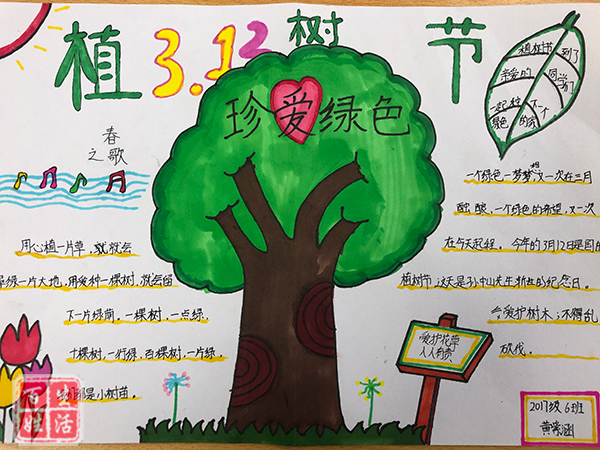 植 3.12 树 节
珍爱绿色
春
之歌
用心植一片草，就就会
绿一片大地，用爱种一棵树，就会留
下一片绿荫。一棵树，一点绿
十棵树，一行绿，百棵树，一片绿。
是小树苗。
植树节到了
亲爱的同学们
一起种下一个
绿色的
一个绿色一梦想，又一次在三月
酿，一个绿色的希望，又一次
在今天起程。今年的3月12日是
植树节，这天是孙中山先生逝世的纪念日。
爱护树木，不得乱
砍伐。
爱护花草
人人有责
2017级6班
黄
百姓生活